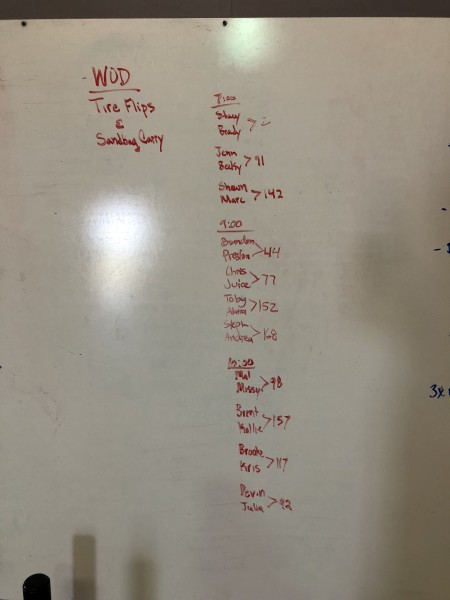 - WOD
Tire Flips
&
Sandbag Carry
Stacy
Brady >
Jenn
Becky > 91
Shawn
Marc > 142
9:00
Brandon
Preston > 44
Chris
Juice > 77
Toby
> 152
Steph
Andrea > 168
Mal
Missy > 98
Brent
Kallie > 157
Brooke
Kris > 117
Devin
Julia > 92
3x